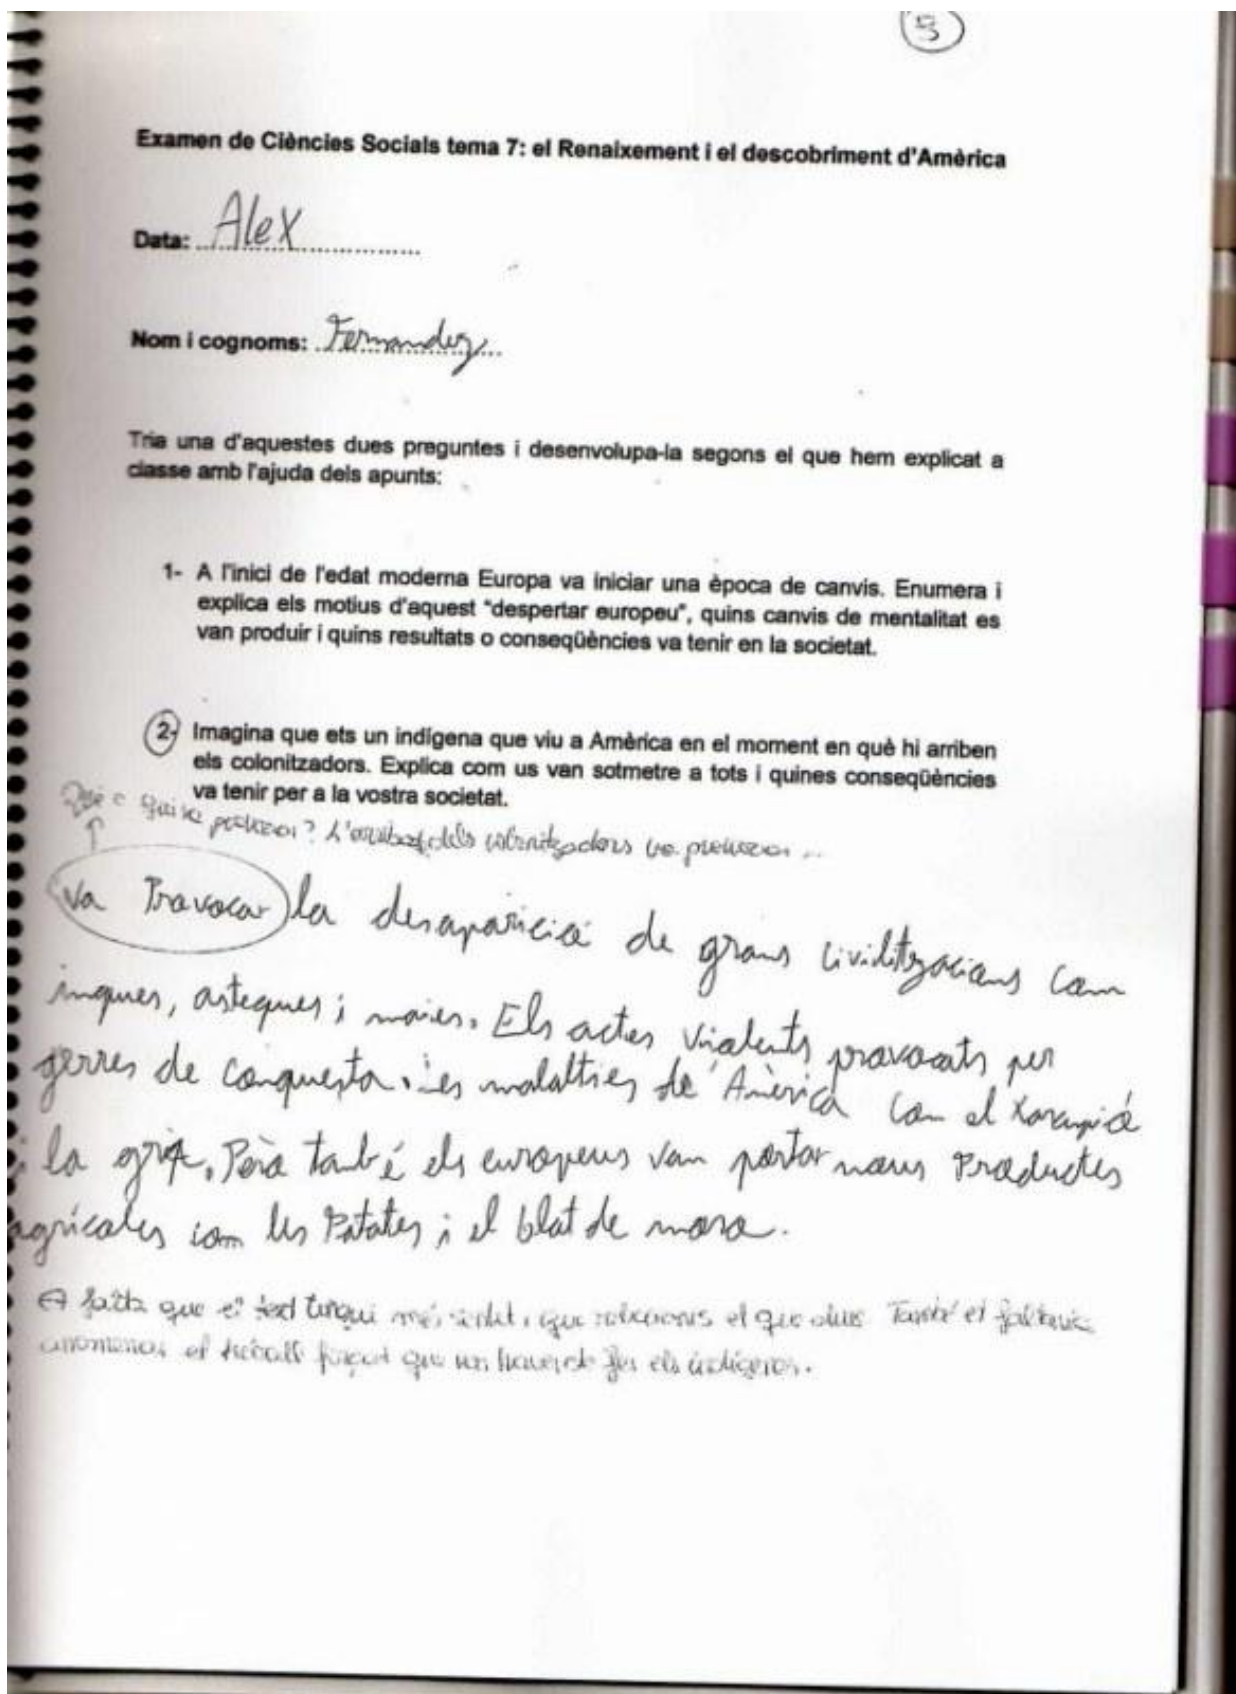 5
Examen de Ciències Socials tema 7: el Renaixement i el descobriment d'Amèrica
Data: Alex
Nom i cognoms: Fernandez
Tria una d'aquestes dues preguntes i desenvolupa-la segons el que hem explicat a
classe amb l'ajuda dels apunts:
1- A l'inici de l'edat moderna Europa va iniciar una època de canvis. Enumera i
explica els motius d'aquest "despertar europeu", quins canvis de mentalitat es
van produir i quins resultats o conseqüències va tenir en la societat.
2- Imagina que ets un indígena que viu a Amèrica en el moment en què hi arriben
els colonitzadors. Explica com us van sotmetre a tots i quines conseqüències
va tenir per a la vostra societat.
Què o qui va provocar? L'arribada dels colonitzadors va provocar...
Va Provocar la desaparició de grans civilitzacions com
inques, asteques i maies. Els actes violents provocats per
gerres de conquesta. les malalties de Amèrica com el Xarampió
i la grip. Però també els europeus van portar nous Productes
agrícoles com les Patates i el blat de moro.
Et falta que el text tingui més sentit, que relacionis el que dius. També et faltaria
anomenar el treball forçat que van haver de fer els indígenes.